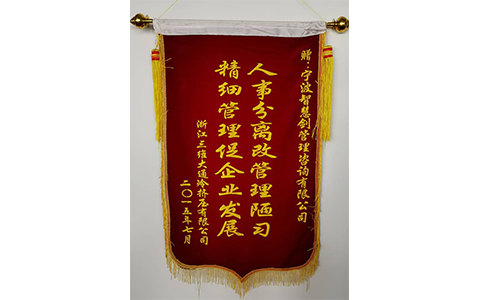 赠：宁波智慧创管理咨询有限公司
人事分离改管理陋习
精细管理促企业发展
浙江三维大通冷挤压有限公司
二〇一五年七月